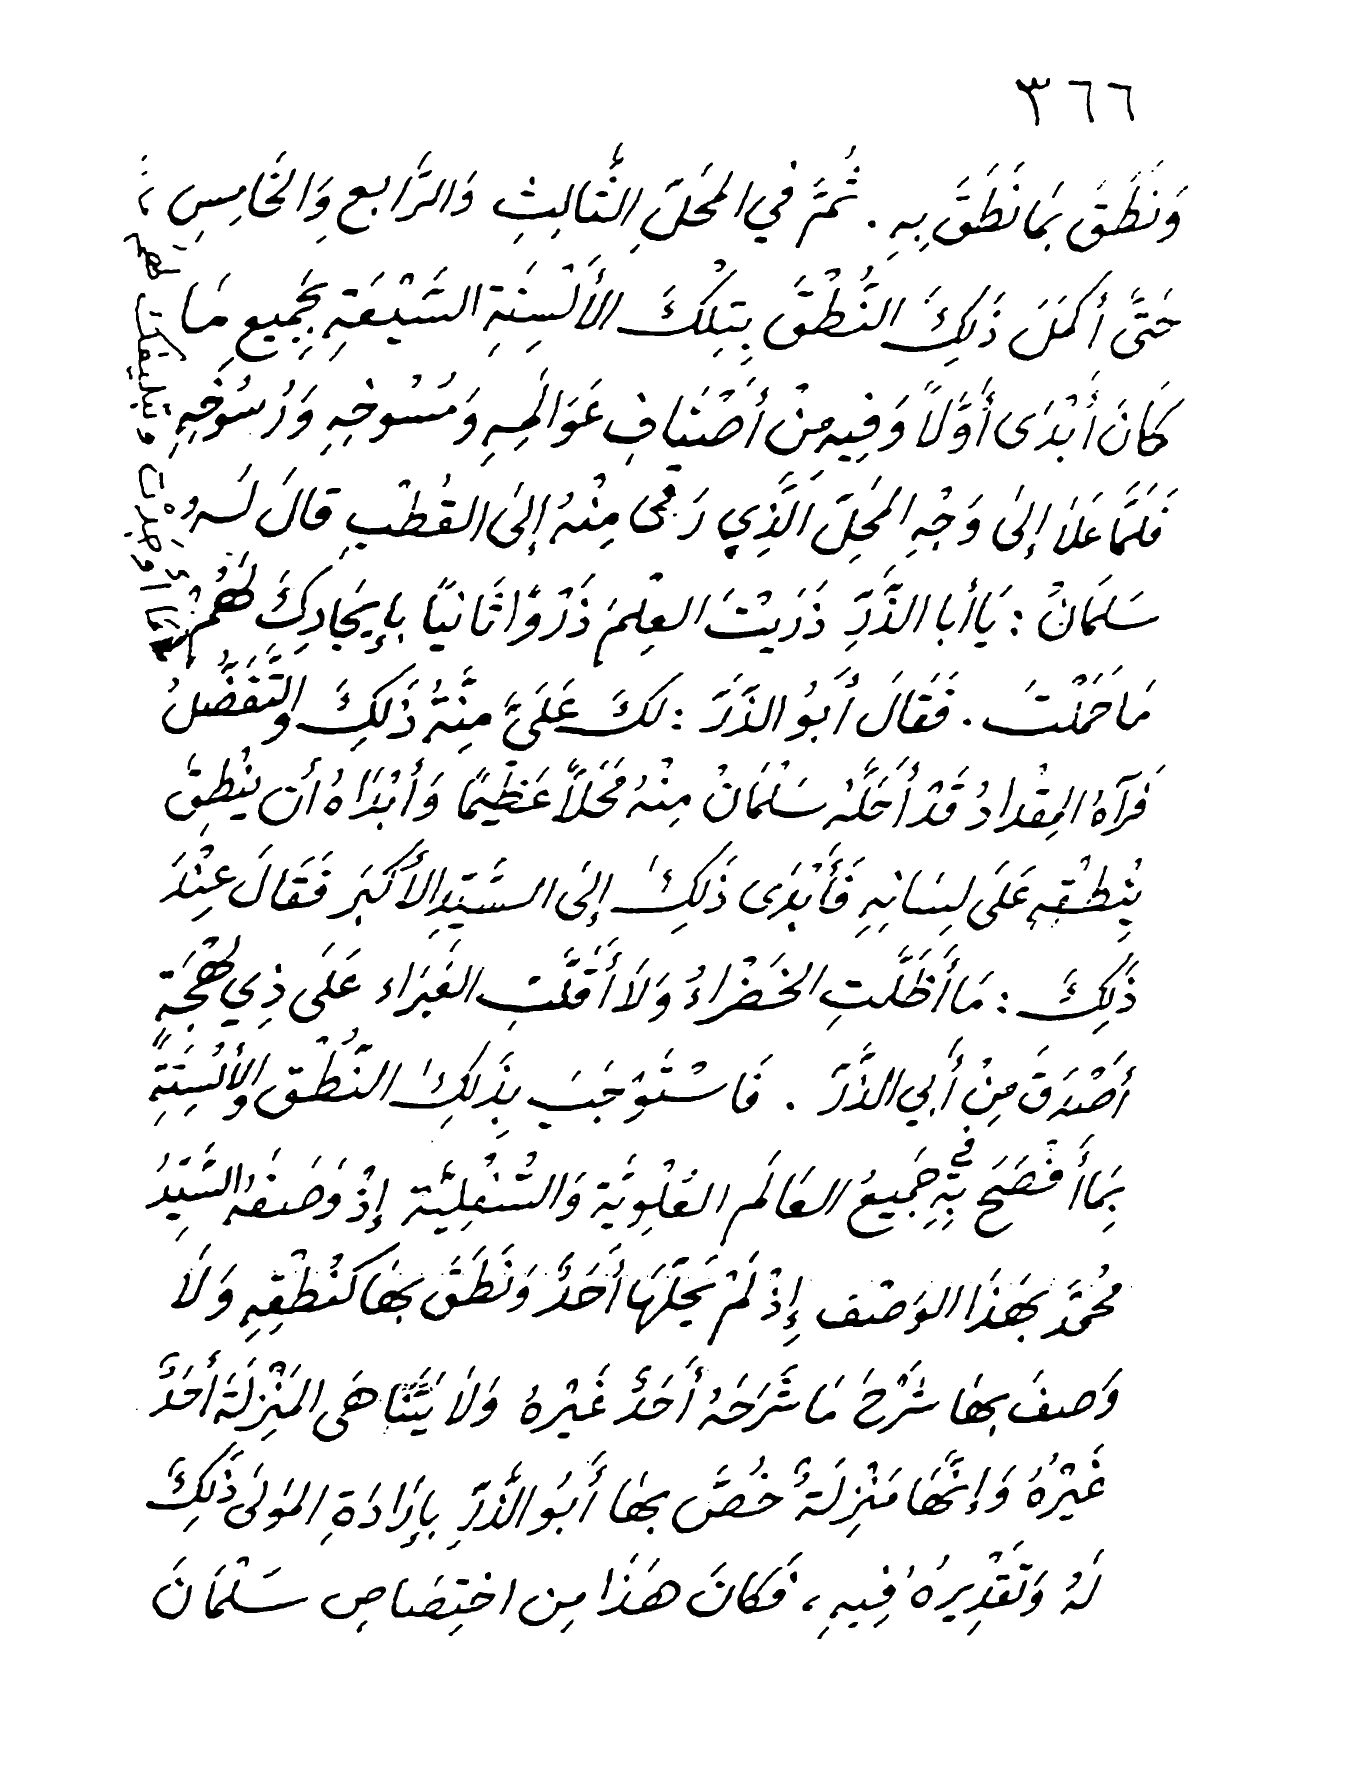 ٣٦٦
وَنَطَقَ بِمَا نَطَقَ بِهِ . ثُمَّ فِي المَحَلِّ الثَّالِثِ وَالرَّابِعِ وَالخَامِسِ
حَتَّى أَكمَلَ ذَلِكَ النُّطْقَ بِتِلْكَ الأَلْسِنَةِ السَّبْعَةِ بِجَمِيعِ مَا
كَانَ أَبْدَى أَوَّلاً وَفِيهِ مِنْ أَصْنَافِ عَوَالِمِهِ وَمُسُوخِهِ وَرُسُوخِهِ
فَلَمَّا عَلاَ إِلىٰ وَجْهِ المَحَلِّ الَّذِي رَقى مِنْهُ إِلىَ القُطْبِ قالَ لَهُ
سَلمَانُ : يَا أَبا الذَّرِّ ذَرَيْتَ العِلْمَ ذَرْوًا ثَانيًا بِإِيجَادِكَ لَهُمْ
مَا أَوجَدْتَ وَتبليغكَ لهم
مَا حَمَلْتَ . فَقَالَ أَبُو الذَّرِّ : لَكَ عَلَيَّ مِنَّةُ ذَلِكَ وَالتَّفَضُّلُ
فَرَآهُ المِقْدادُ قَدْ أَحَلَّهُ سَلْمَانُ مِنْهُ مَحَلاًّ عَظيمًا وَأَبْدَاهُ أن يَنْطِقَ
بِنُطْقِهِ عَلَى لِسَانِهِ فَأَبْدَى ذَلِكَ إِلىَ السَّيِّدِ الأَكْبَرِ فَقَالَ عِنْدَ
ذَلِكَ : مَا أَظَلَّتِ الخَضْرَاءُ وَلاَ أَقَلَّتِ الغَبْرَاء عَلَى ذِي لَهْجَةٍ
أَصْدَقَ مِنْ أَبِي الذَّرِّ . فَاسْتَوْجَبَ بِذَلِكَ النُّطْقِ وَالأَلْسِنَةِ
بِمَا أَفْصَحَ بِهِ فِي جَمِيعُ العَالَمِ العُلْوِيَّة وَالسُّفْلِيَّة إِذْ وَصَفَهُ السَّيِّدُ
مُحمَّدٌ بِهَذَا الوَصْف إِذْ لَمْ يَحُلَّهَا أَحَدٌ وَنَطَقَ بِهَا كَنُطْقِهِ وَلاَ
وَصفَ بِهَا شَرْحَ مَا شَرَحَهُ أَحَدٌ غَيْرهُ وَلاَ يَتَنَاهَى المَنْزِلَةَ أَحَدٌ
غَيْرُهُ وَإِنَّهَا مَنْزِلَةٌ خُصَّ بِهَا أَبُو الذَّرِّ بِإِرَادَةِ المَولىَ ذَلِكَ
لَهُ وَتَقْدِيرهُ فِيهِ ، فَكَانَ هَذَا مِن اختِصَاصِ سَلْمَانَ